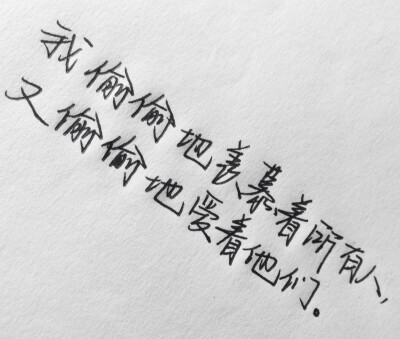 我偷偷地羡慕着所有人,
又偷偷地爱着他们。